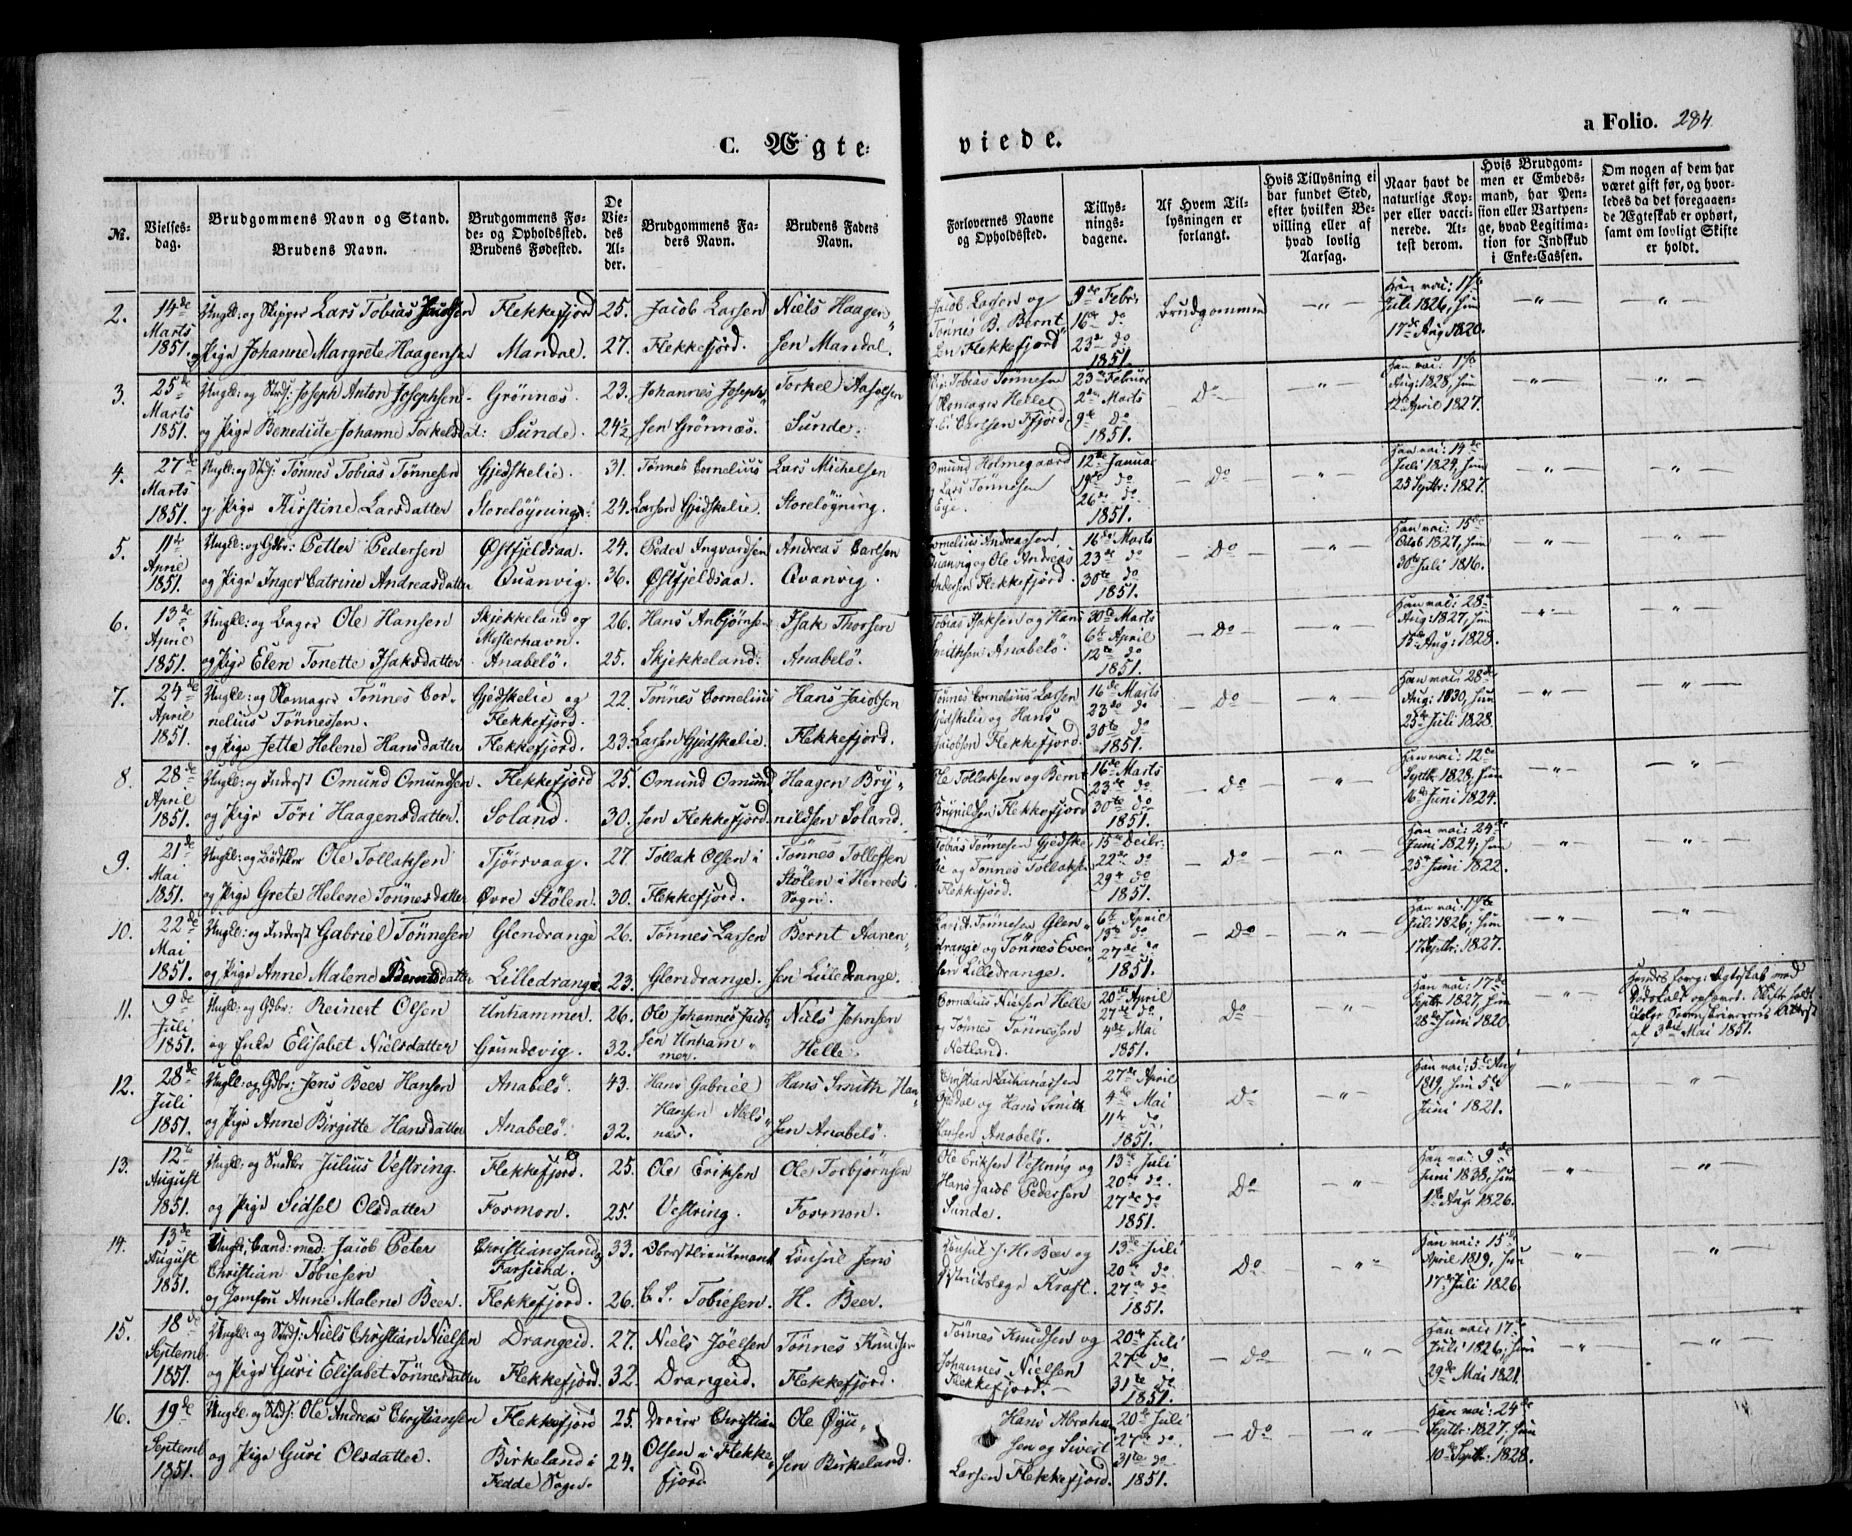 a Folio. 284.
C. Ægte-
viede.
No. Vielses-dag. Brudgommens Navn og Stand. Brudens Navn. Brudgommens Fø-de- og Opholdssted. Brudens Fødested. De Vie-des Al-der. Brudgommens Fa-ders Navn. Brudens Faders Navn. Forlovernes Navne og Opholdssted. Tillys-nings-dagene. Af Hvem Til-lysningen er forlangt. Hvis Tillysning ei har fundet Sted, efter hvilken Be-villing eller af hvad lovlig Aarsag. Naar havt de naturlige Kop-per eller vacci-nerede. At-test derom. Hvis Brudgom-men er Embeds-mand, har Pen-sion eller Vartpen-ge, hvad Legitima-tion for Indskud i Enke-Cassen. Om nogen af dem har været gift før, og hvor-ledes da det foregaaen-de Ægteskab er ophørt, samt om lovligt Skifte er holdt.
2. 14de Marts 1851. Ungk: og Skipper Lars Tobias Jacobsen Flekkefjord 25. Jacob Larsen Niels Haagen- Jacob Larsen og 9de Febr. Brudgommen — " — Han vai: 17de Juli 1826, hun 17de Aug 1820. — " — — " —
og Pige Johanne Margrete Haagensen Mandal 27. Flekkefjord. sen Mandal. Tønnes B. Bernt- sen Flekkefjord 16de do 23de do 1851.
3. 25de Marts 1851. Ungk: og Stdsj: Joseph Anton Josephsen Grønnæs. 23. Johannes Joseph- Torkel Aasolsen Tobias Tønnesen 23de Februar — Do — " Han vai: 17de Aug: 1828, hun 12te April 1827. — " — — " —
og Pige Benedicte Johanne Torkelsdat: Sunde. 24½ sen Grønnæs. Sunde. Carlsen Fjord. 2den Marts 9de Do 1851.
4. 27de Marts 1851. Ungk: og Stdsj: Tønnes Tobias Tønnesen Gjedskelie. 31. Tønnes Cornelius Lars Michelsen Omund Holmegaard 12te Januar — Do — " Han vai: 14de Juli 1824, hun 25 Septbr: 1827. — " — — " —
og Pige Kirstine Larsdatter Storeløyning. 24. Larsen Gjedskelie. Storeløgning. og Lars Tønnesen Eye. 19de do 26de do 1851.
5. 11te April 1851. Ungk: og Gdbr: Petter Pedersen Østfjeldsaa. 24. Peder Ingvardsen Andreas Carlsen Cornelius Andreassen 16de Marts — Do — " Han vai: 15de Octob 1827, hun 30te Juli 1816. — " — — " —
og Pige Inger Catrine Andreasdatter Qvanvig. 36. Østfjeldsaa. Qvanvig. Quanvig og Ole Andreas Andersen Flekkefjord. 23de do 30te do 1851.
6. 13de April 1851. Ungk: og Bager Ole Hansen Skjekkeland og Mesterhavn. 26. Hans Anbjørnsen Isak Thorsen Tobias Isaksen og Hans 30te Marts — Do — " Han vai: 28de Aug: 1827, hun 15de Aug: 1828. — " — — " —
og Pige Elen Tonette Isaksdatter Anabelø. 25. Skjekkeland. Anabelø. Smithsen Anabelø. 6te April 12te do 1851.
7. 24de April 1851. Ungk: og Skomager Tønnes Cor-nelius Tønnessen. Gjedskelie og Flekkefjord. 22. Tønnes Cornelius Hans Jacobsen Tønnes Cornelius Larsen 16de Marts — Do — " Han vai: 28de Aug: 1830, hun 25de Juli 1828. — " — — " —
og Pige Jette Helene Hansdatter Flekkefjord. 23. Larsen Gjedskelie. Flekkefjord. Gjedskelie og Hans Jacobsen Flekkefjord. 23de do 30te do 1851.
8. 28de April 1851. Ungk: og Inderst Omund Omundsen Flekkefjord 25. Omund Omund- Haagen Bry- Ole Tollaksen og Bernt 16de Marts — Do — " Han vai: 12te Septbr 1828, hun 16de Juni 1824. — " — — " —
og Pige Tøri Haagensdatter. Soland. 30. sen Flekkefjord. nildsen Soland. Brynildsen Flekkefjord 23de do 30te do 1851.
9. 21de Mai 1851. Ungk: og Bødker Ole Tollaksen Tjørsvaag. 27. Tollak Olsen i Tønnes Tollefsen Tobias Tønnesen Gjedske- 15de Decbr. — Do — " Han vai: 24de Juni 1824, hun 25de Juni 1822. " — " —
og Pige Grete Helene Tønnesdatter Øvre Stølen. 30. Flekkefjord. Stølen i Herreds Sogn. lie og Tønnes Tollaksen Flekkefjord. 22de do 29de do 1851.
10. 22de Mai 1851. Ungk: og Inderst Gabriel Tønnesen Glendrange 26. Tønnes Larsen Bernt Aanen- Tønnesen Glen- 6te April — Do — " — Han vai: 17de Juli 1826, hun 17 Septbr: 1827. — " — — " —
og Pige Anne Malene Berntsdatter Lilledrange 23. Glendrange. sen Lilledrange. drange og Tønnes Even- sen Lilledrange. 13de do 27de do 1851.
11. 9de Juli 1851. Ungk: og Gdbr: Reinert Olsen Unhammer. 26. Ole Johannes Jacob- Niels Johnsen Cornelius Nielsen Helle 20de April Do — " Han vai: 17de Septbr 1827, hun 28de Juni 1820. — " — Hendes forrige Ægteskab med Dødsfald ophævet. Skifte holdt ifølge Sorenskriverens Attest af 3die Mai 1851.
og Enke Elisabet Nielsdatter Grundevig. 32. sen Unham- mer. Helle. og Tønnes Tønnesen Netland. 27de do. 4de Mai 1851.
12. 28de Juli 1851. Ungk: og Gdbr: Jens Beer Hansen Anabelø 43. Hans Gabriel Hans Smith Han- Christian Zachariassen 27de April Do — " — Han vai: 5te Aug 1819, hun 5te Juni 1821. — " — "
og Pige Anne Birgitte Hansdatter Anabelø. 32. Hansen Abels- næs. sen Anabelø. og Hans Smith Hansen Anabelø. 4de Mai 11te do. 1851.
13. 12te August 1851. Ungk: og Snedker Julius Vestring. Flekkefjord. 25. Ole Eriksen Ole Torbjørnsen Ole Eriksen Vestring og 13de Juli Do — " — Han vai: 9de Juni 1838, hun 1ste Aug: 1826. " — " —
og Pige Sidsel Olsdatter Fosmon. 25. Vestring. Fosmon. Hans Jacob Pedersen Sunde. 20de do. 27de do 1851.
14. 13de August 1851. Ungk: Cand: med: Jacob Peter Christian Tobiesen Christianssand og Farsund. 33. Oberstlieutnant Consul Jens Consul J. H. Beer og 13de Juli Do — " — Han vai: 15de April 1819, hun 17de Juli 1826. " "
og Jomfru Anne Malene Beer. Flekkefjord. 26. C. S. Tobiesen. H. Beer. Districtslæge Kraft. 20de do. 27de do 1851.
15. 18de Septemb. 1851. Ungk: og Stdsj: Niels Christian Nielsen Drangeid. 27. Niels Joelsen Tønnes Knudsen Tønnes Knudsen og 20de Juli — Do — " — Han vai: 17de Juli 1826, hun 29de Mai 1821. — " — — " —
og Pige Guri Elisabet Tønnesdatter Flekkefjord. 32. Drangeid. Flekkefjord. Johannes Nielsen Flekkefjord. 27de do. 31te do. 1851.
16. 19de Septemb. 1851. Ungk: og Stdsj: Ole Andreas Christiansen Flekkefjord 25. Dreier Christian Ole Øyu- Hans Abraham- 20de Juli — Do — " Han vai: 24de Septbr: 1827, hun 10de Septbr: 1828. "
og Pige Guri Olsdatter. Birkeland i Fedde Sogn. 24. Olsen i Flekke- fjord. sen Birkeland. sen og Sivert Larsen Flekkefjord. 27de do. 31te do 1851.